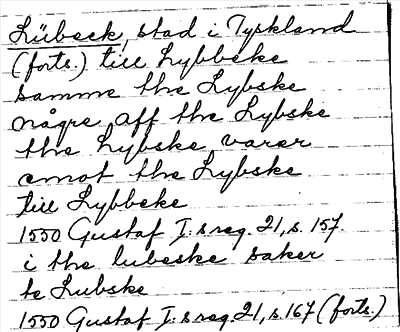 Lübeck, stad i Tyskland
(forts.) till Lybbeke
samme the Lybske
någre aff the Lybske
the Lybske varer
emot the Lybske
till Lybbeke
1550 Gustaf I:s reg. 21, s. 157.
i the lubeske saker
te Lubske
1550 Gustaf I:s reg. 21, s. 167 (forts.)